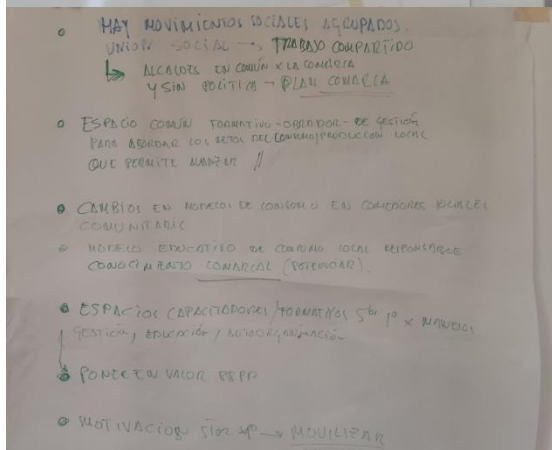 HAY MOVIMIENTOS SOCIALES AGRUPADOS.
UNION SOCIAL → TRABAJO COMPARTIDO
↳ ALCALDES EN COMÚN X LA COMARCA
Y SIN POLITICA → PLAN COMARCA
ESPACIO COMÚN FORMATIVO - OBRADOR - DE GESTIÓN
PARA ABORDAR LOS RETOS DEL CONSUMO/PRODUCCION LOCAL
QUE PERMITE AVANZAR //
CAMBIOS EN MODELOS DE CONSUMO EN COMEDORES SOCIALES
MODELO EDUCATIVO DE CONSUMO LOCAL RESPONSABLE
CONOCIMIENTO COMARCAL (POTENCIAR).
ESPACIOS CAPACITADORES/FORMATIVOS 5tor 1º X
GESTIÓN, EDUCACIÓN, AUTOORGANIZACIÓN
PONER EN VALOR
MOTIVACION 5tor → MOVILIZAR